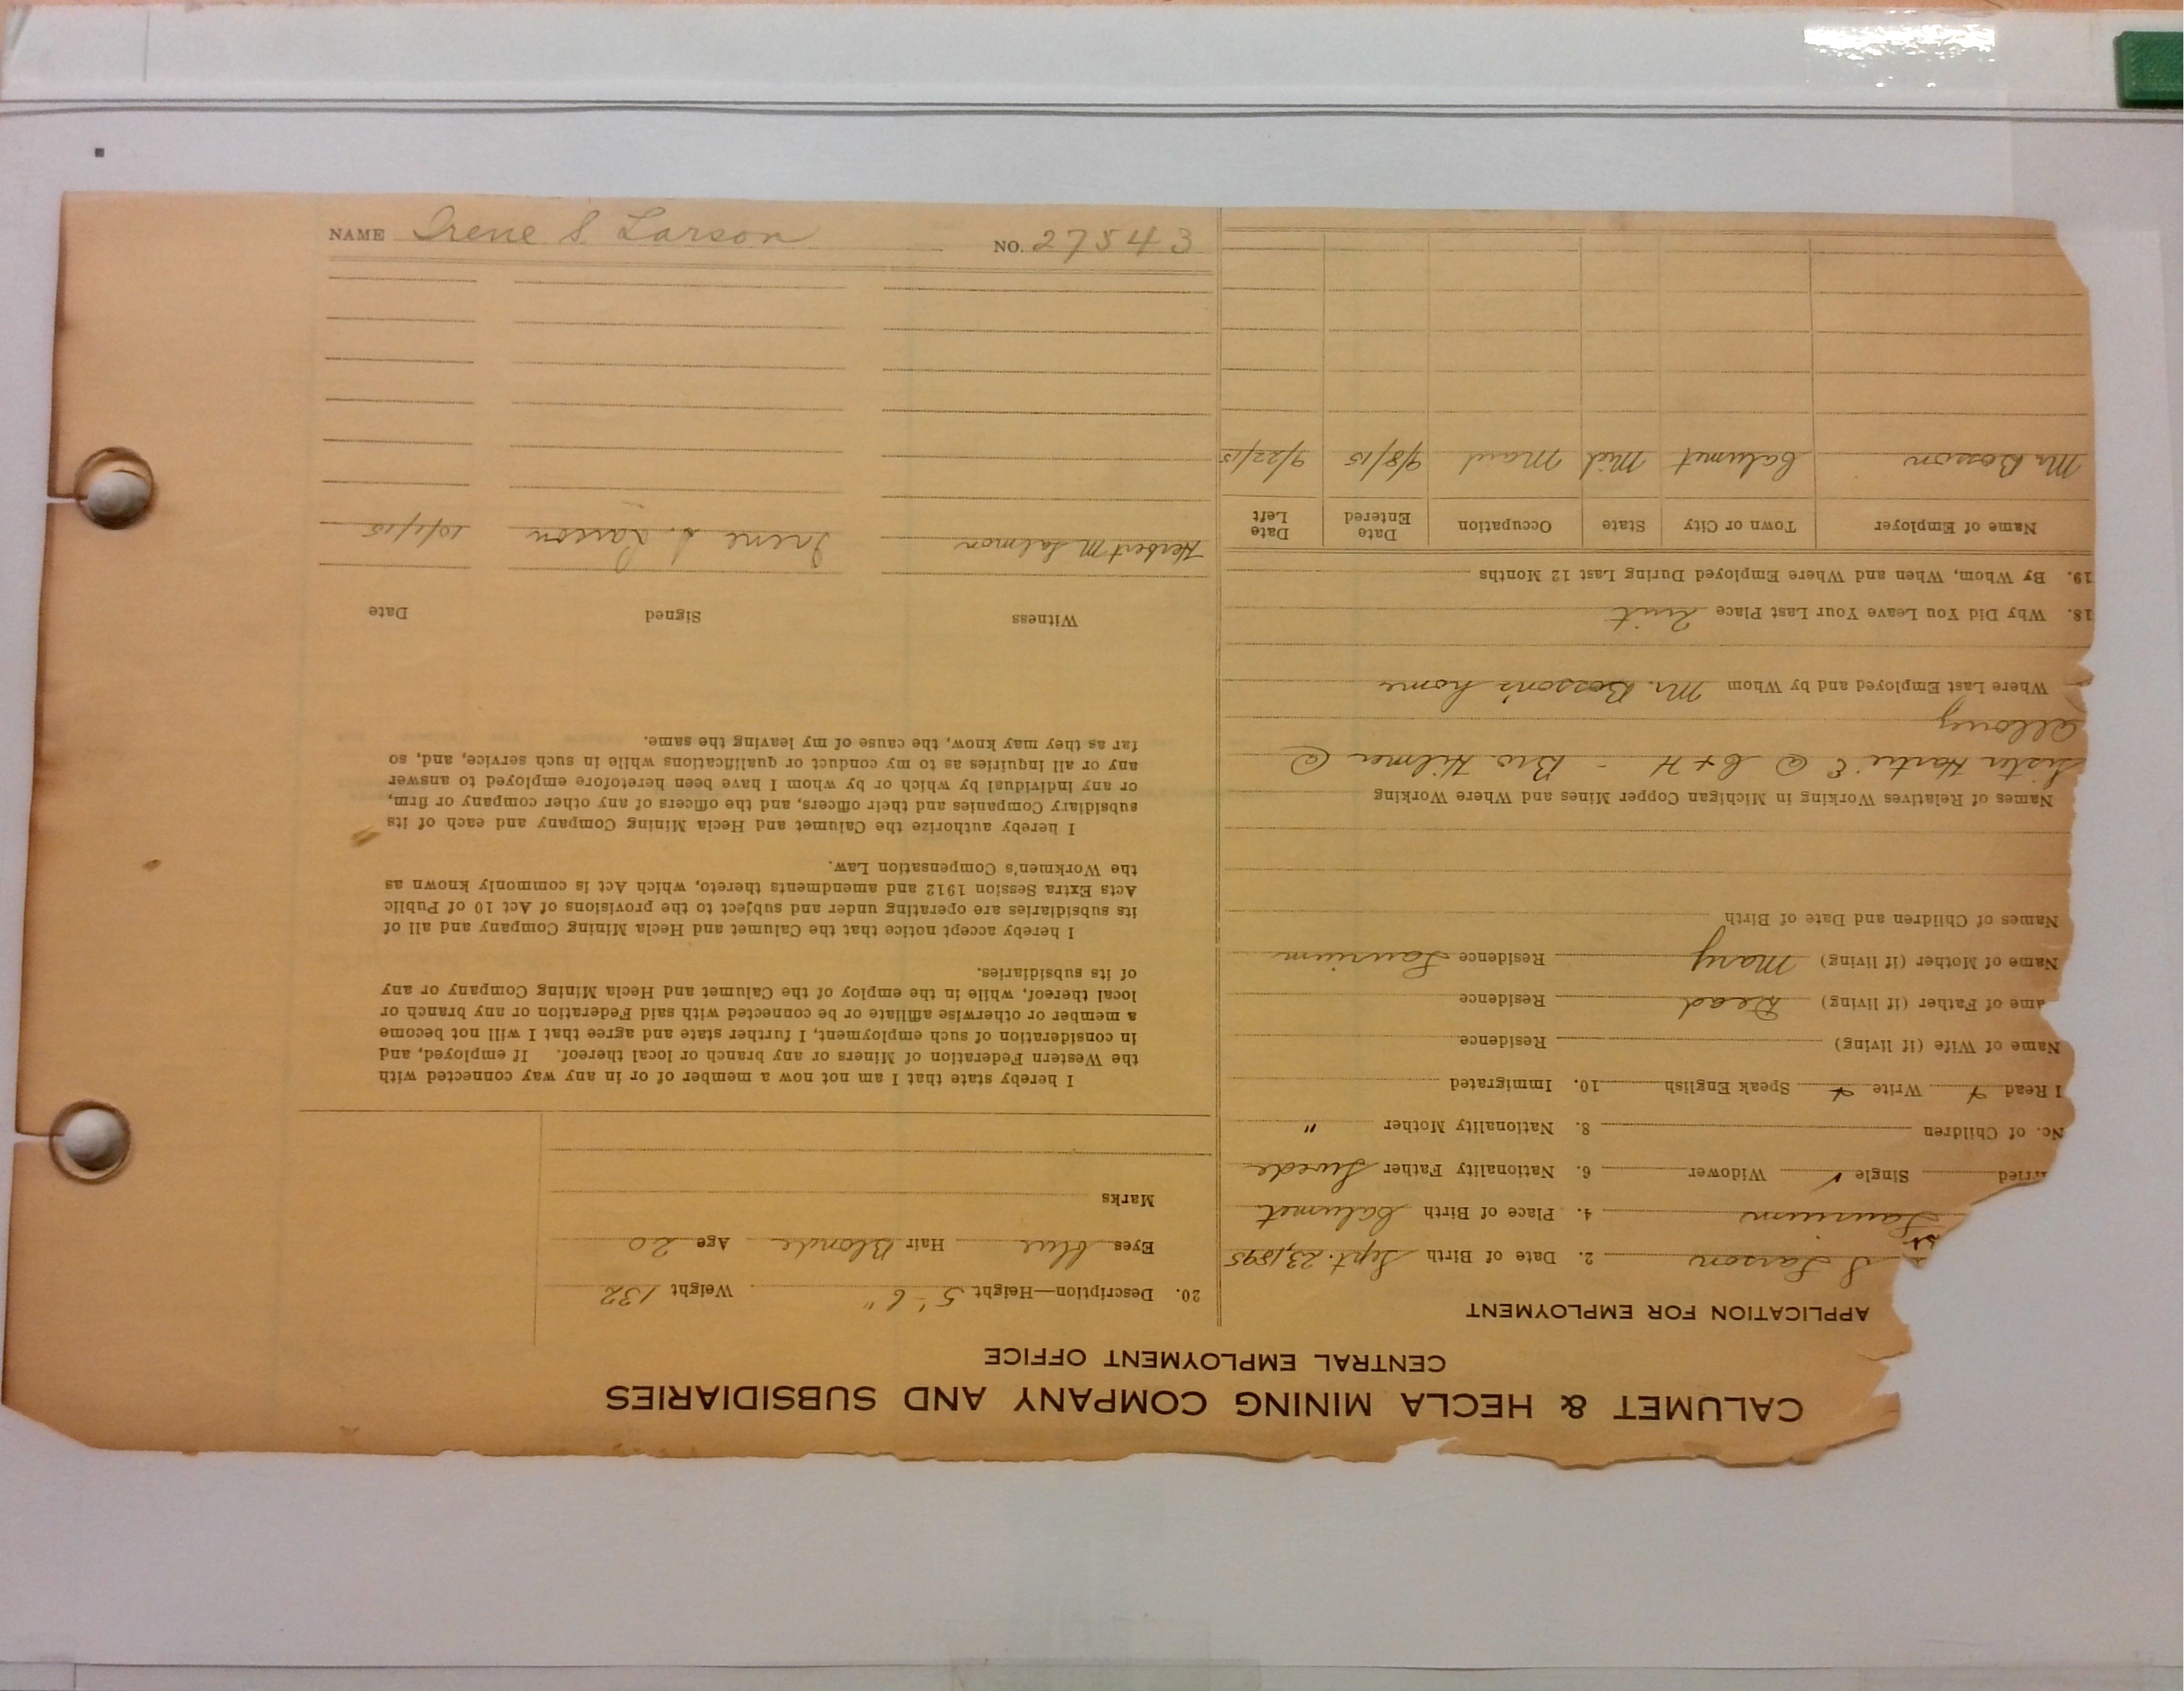 CALUMET & HECLA MINING COMPANY AND SUBSIDIARIES
CENTRAL EMPLOYMENT OFFICE
APPLICATION FOR EMPLOYMENT
S Larson 2. Date of Birth Sept. 23, 1895
st
Laurium 4. Place of Birth Calumet
rried Single ✓ Widower 6. Nationality Father Swede
No. of Children 8. Nationality Mother "
I Read Write Speak English 10. Immigrated
Name of Wife (if living) Residence
ame of Father (if living) Dead Residence
Name of Mother (if living) Mary Residence Laurium
Names of Children and Date of Birth
Names of Relatives Working in Michigan Copper Mines and Where Working
Sister E @ C + H - Bro Hilmer @
Allouez
Where Last Employed and by Whom Mr. Bosson's home
18. Why Did You Leave Your Last Place Quit
19. By Whom, When and Where Employed During Last 12 Months
Name of Employer Town or City State Occupation Date Entered Date Left
Mr Bosson Calumet Mich Maid 9/8/15 9/22/15
20. Description—Height 5' 6" Weight 132
Eyes blue Hair Blonde Age 20
Marks
I hereby state that I am not now a member of or in any way connected with
the Western Federation of Miners or any branch or local thereof. If employed, and
in consideration of such employment, I further state and agree that I will not become
a member or otherwise affiliate or be connected with said Federation or any branch or
local thereof, while in the employ of the Calumet and Hecla Mining Company or any
of its subsidiaries.
I hereby accept notice that the Calumet and Hecla Mining Company and all of
its subsidiaries are operating under and subject to the provisions of Act 10 of Public
Acts Extra Session 1912 and amendments thereto, which Act is commonly known as
the Workmen's Compensation Law.
I hereby authorize the Calumet and Hecla Mining Company and each of its
subsidiary Companies and their officers, and the officers of any other company or firm,
or any individual by which or by whom I have been heretofore employed to answer
any or all inquiries as to my conduct or qualifications while in such service, and, so
far as they may know, the cause of my leaving the same.
Witness Signed Date
Herbert M Salmon Irene S. Larson 10/1/15
NAME Irene S Larson NO. 27543